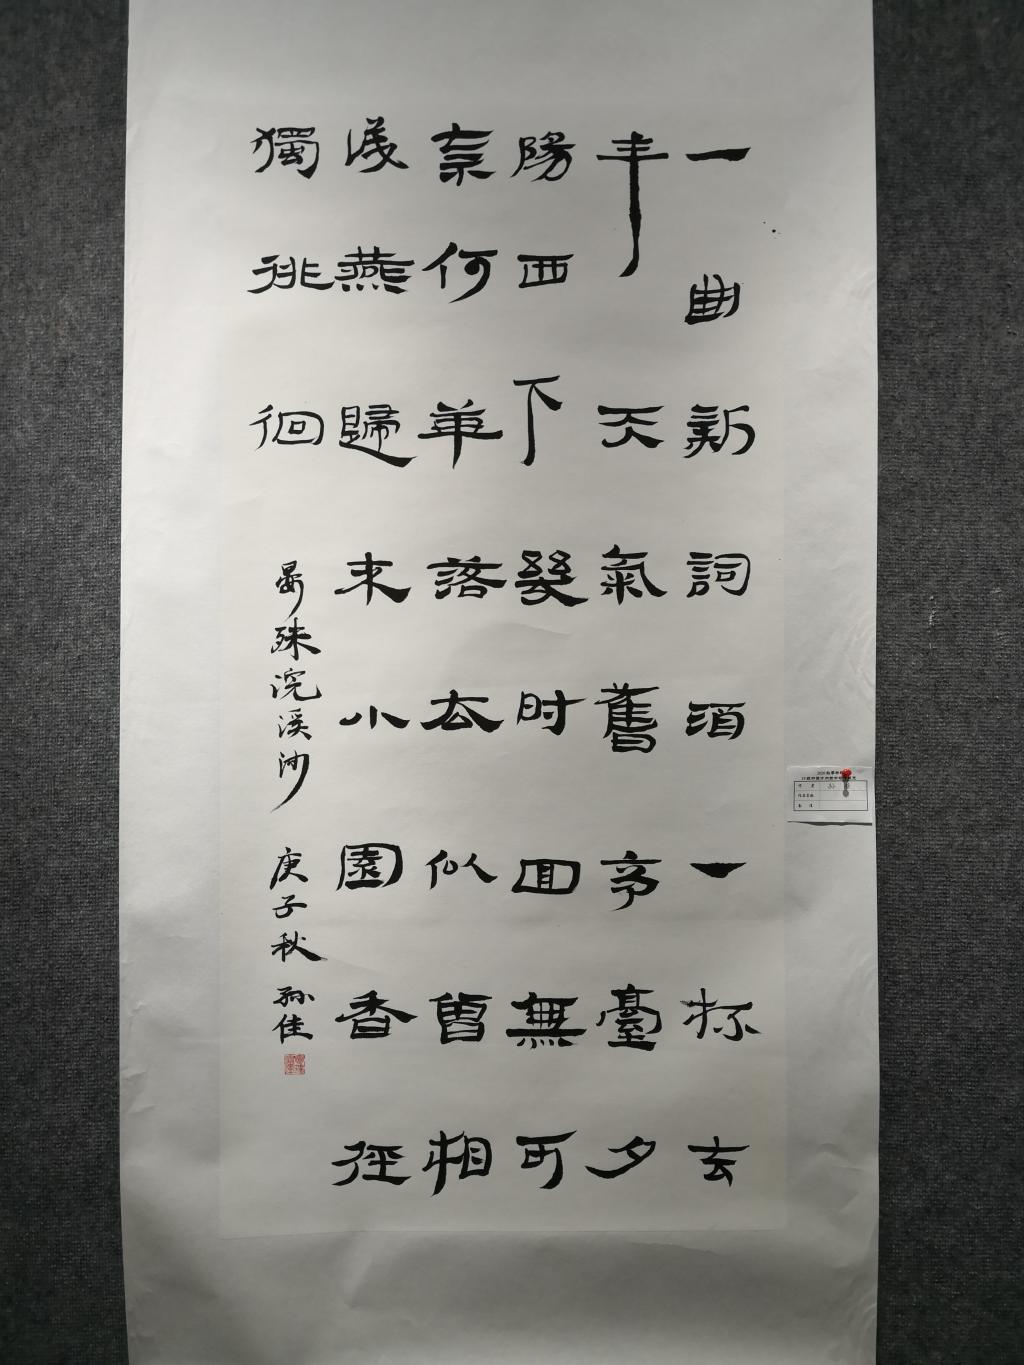 一曲新詞酒一杯去
年天氣舊亭臺夕
陽西下幾时回無可
奈何華落去似曾相
識燕歸来小園香徑
獨徘徊
晏殊浣溪沙 庚子秋 孙佳